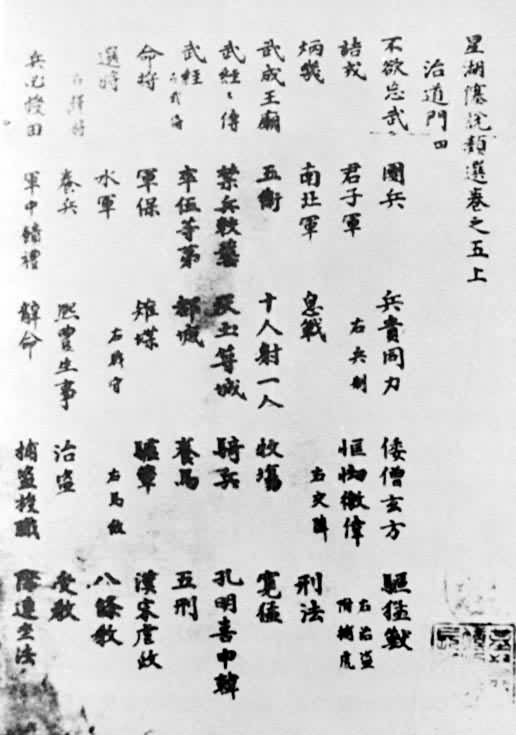 星湖僿說類選卷之五上
治道門四
不欲忘武 國兵 兵貴同力 倭僧玄方 驅猛獸
詰戎 君子軍 右兵制 恇㤼徼倖 右治盜 附捕虎
炳幾 南北軍 息戰 右交隣 刑法
武成王廟 五衛 十人射一人 牧場 寬猛
武經七傳 禁兵較藝 土等城 騎兵 孔明喜申韓
武經 右武備 卒伍等第 都城 養馬 五刑
命將 軍保 雉堞 驢軍 漢宋虐政
選將 水軍 右戰守 右馬政 八條教
右擇將 養兵 熙豊生事 治盜 受教
授田 軍中禮 解命 捕盜授職 連坐法